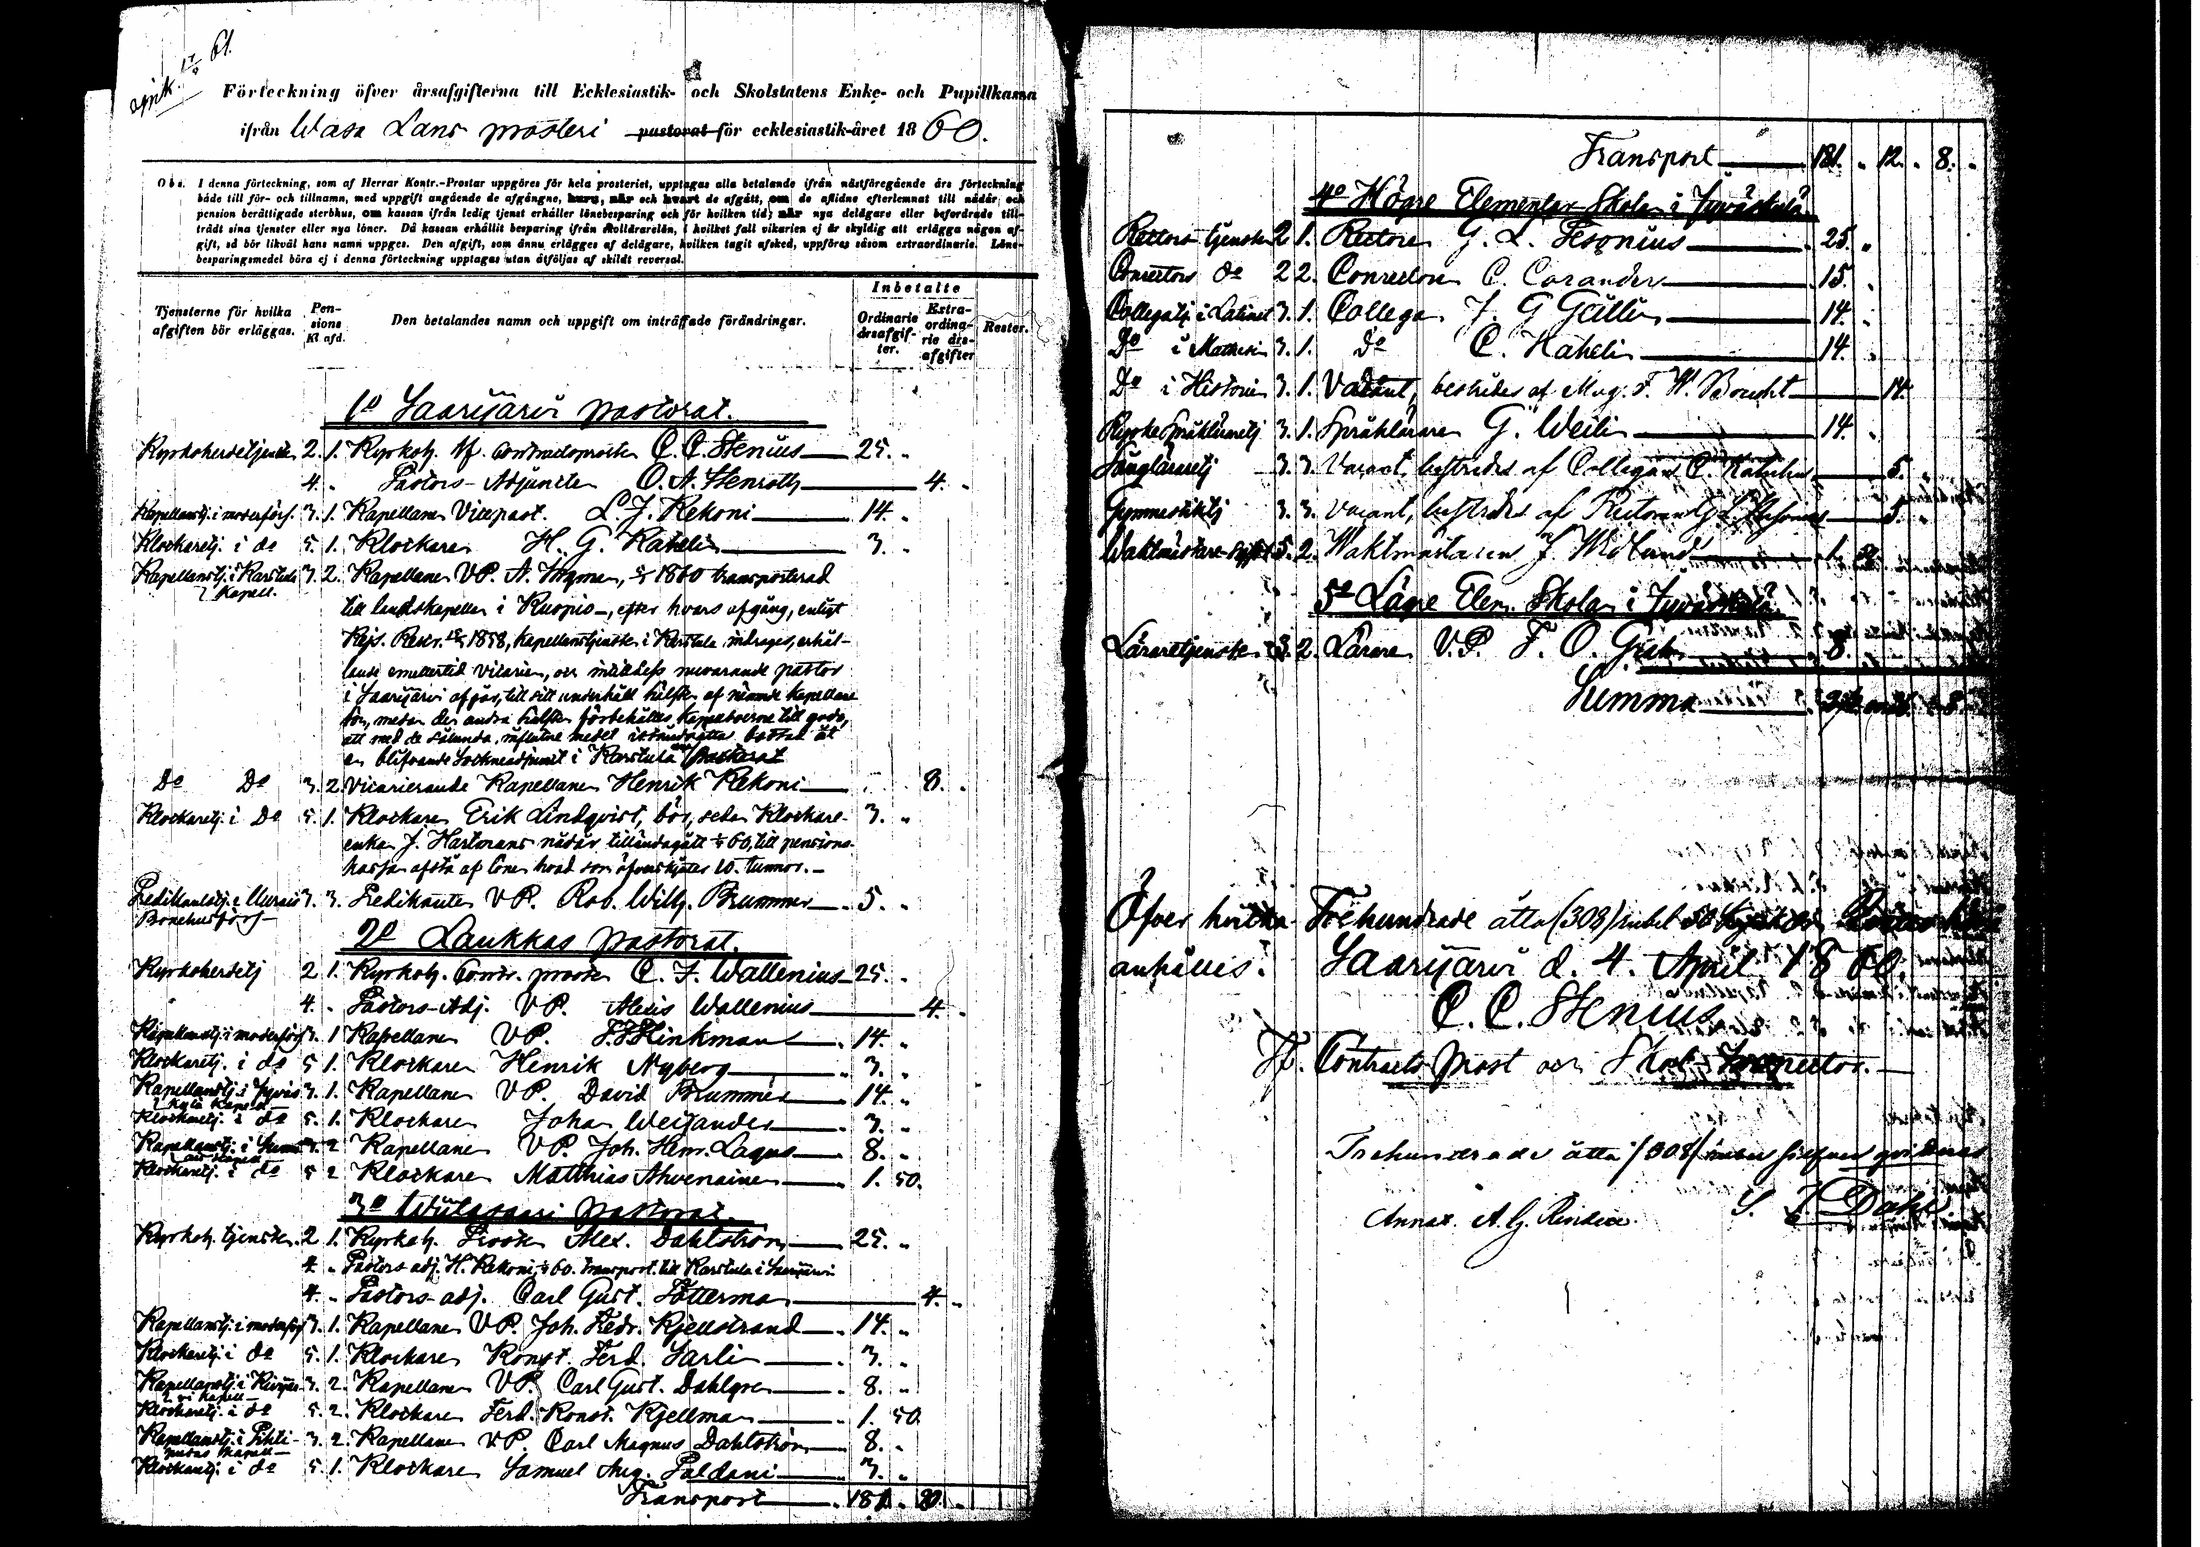 Förteckning öfver årsafgifterna till Ecklesiastik- och Skolstatens Enke- och Pupillkassa
ifrån Wasa Läns prosteri pastorat för ecklesiastik-året 1860.
Obs. I denna förteckning, som af Herrar Kontr.-Prostar uppgöres för hela prosteriet, upptagas alla betalande ifrån nästföregående års förteckning
både till för- och tillnamn, med uppgift angående de afgångne, huru, när och hvart de afgått, om de aflidne efterlemnat till nådår och
pension berättigade sterbhus, om kassan ifrån ledig tjenst erhåller lönebesparing och för hvilken tid; när nya delägare eller befordrade till-
trädt sina tjenster eller nya löner. Då kassan erhållit besparing ifrån skollärarelön, i hvilket fall vikarien ej är skyldig att erlägga någon af-
gift, så bör likväl hans namn uppges. Den afgift, som ännu erlägges af delägare, hvilken tagit afsked, uppföres såsom extraordinarie. Löne-
besparingsmedel böra ej i denna förteckning upptagas utan åtföljas af skildt reversal.
Tjensterne för hvilka afgiften bör erläggas.
Pensions Kl. afd.
Den betalandes namn och uppgift om inträffade förändringar.
Inbetalte
Ordinarie årsafgifter.
Extraordinarie årsafgifter
Rester.
1o Saarijärvi pastorat.
Kyrkoherdetjensten 2. 1. Kyrkoh. tf. Contractsprosten C. C. Stenius 25.
4. Pastors-Adjuncten O. A. Stenroth 4.
Kapellanstj. i moderförs. 3. 1. Kapellanen Vicepast. L. J. Rekoni 14.
Klockaretj. i do 5. 1. Klockaren H. G. Kahelin 3.
Kapellanstj. i Karstula Kapell. 3. 2. Kapellanen VP. A. Ingman, 1860 transporterad
till landskapellan i Kuopio, efter hvars afgång, enligt
Kejs. Reser. 1858, kapellanstjensten i Karstula indrages, erhål-
lande emellertid Vicarien, och nuvarande pastor
i Saarijärvi afgår, till sitt underhåll hälften af nämnde kapellans
lön, medan den andra hälften förbehålles kapellboerne till godo,
en blifvande Sockneadjunct i Karstula
Do Do 3. 2. Vicarierande Kapellanen Henrik Rekoni 8.
Klockaretj. i Do 5. 1. Klockaren Erik Lindqvist, bör, sedan Klockare-
enkan J. Hartmans nådår tilländagått 60, till pensions-
kassan afstå af lönen hvad som öfverskjuter 10. tunnor.
Predikantstj. i Uurais Bönehusförs. 3. 3. Predikanten VP. Rob. Wilh. Brummer 5.
2o Laukkas pastorat.
Kyrkoherdetj 2 1. Kyrkoh. Contr. prosten C. J. Wallenius 25.
4. Pastors-Adj. VP. Alexis Wallenius 4.
Kapellanstj. i moderförs 3. 1 Kapellanen VP. Hinkman 14.
Klockaretj. i do 5 1. Klockaren Henrik Nyberg 3.
Kapellanstj. i Jyväskylä Kapell 3. 1. Kapellanen VP. David Brummer 14.
Klockaretj. i do 5. 1. Klockaren Johan Weijander 3.
2 Kapellanen VP. Joh. Henr. Lagus 8.
Klockaretj. i do 5 2 Klockaren Matthias Ahvenainen 1. 50.
3o Wiitasaari pastorat.
Kyrkoh. tjensten. 2 1. Kyrkoh. Prosten Alex. Dahlström 25.
4. Pastors adj. H. Rekoni, 60. transport. till Karstula i Saarijärvi
4. Pastors-adj. Carl Gust. Fätterman 4.
Kapellanstj. i moderförs 3. 1. Kapellanen VP. Joh. Fedr. Kjellstrand 14.
Klockaretj. i do 5. 1. Klockaren Konst. Ferd. Sarlin 3.
Kapellanstj. i Kivijärvi Kapell 3. 2. Kapellanen VP. Carl Gust. Dahlgren 8.
Klockaretj. i do 5. 2. Klockaren Ferd. Konst. Kjellman 1. 50.
Kapellanstj. i Pihtipudas Kapell 3. 2. Kapellanen VP. Carl Magnus Dahlström 8.
Klockaretj. i do 5. 1. Klockaren Samuel Aug. Paldani 3.
Transport 181. 20.
Transport 181. 12. 8.
4o Högre Elementar Skolan i Jyväskylä
Rectors tjensten 2 1. Rectoren G. L. Jesonius 25.
Conrectors do 2 2. Conrectoren C. Corander 15.
Collegatj. i Latinet 3. 1. Collega J. G. 14.
Do i Mathesin 3. 1. do C. Kahelin 14.
Do i Historien 3. 1. Vacant, bestrides af Mag. F. W. 14.
Språkläraretj 3. 1. Språkläraren G. Welin 14.
Sångläraretj 3. 3. Vacant, bestrides af Collegan C. Kahelin 5.
Gymnastiktj 3. 3. Vacant, bestrides af Rectoren G. L. Jesonius 5.
5. 2. Waktmästaren J. 1. 50.
5o Lägre Elem. Skolan i Jyväskylä
Läraretjensten 3. 2. Läraren V.P. F. O. 8.
Summa
Öfver hvilka Trehundrade åtta (308) rubel 50
anhålles. Saarijärvi d. 4. April 1860.
C. C. Stenius
Tf. Contracts Prost och Skol-Inspector.
Trehundrade åtta /308/ silfver qvitteras
Dahl
Annot. A. G.